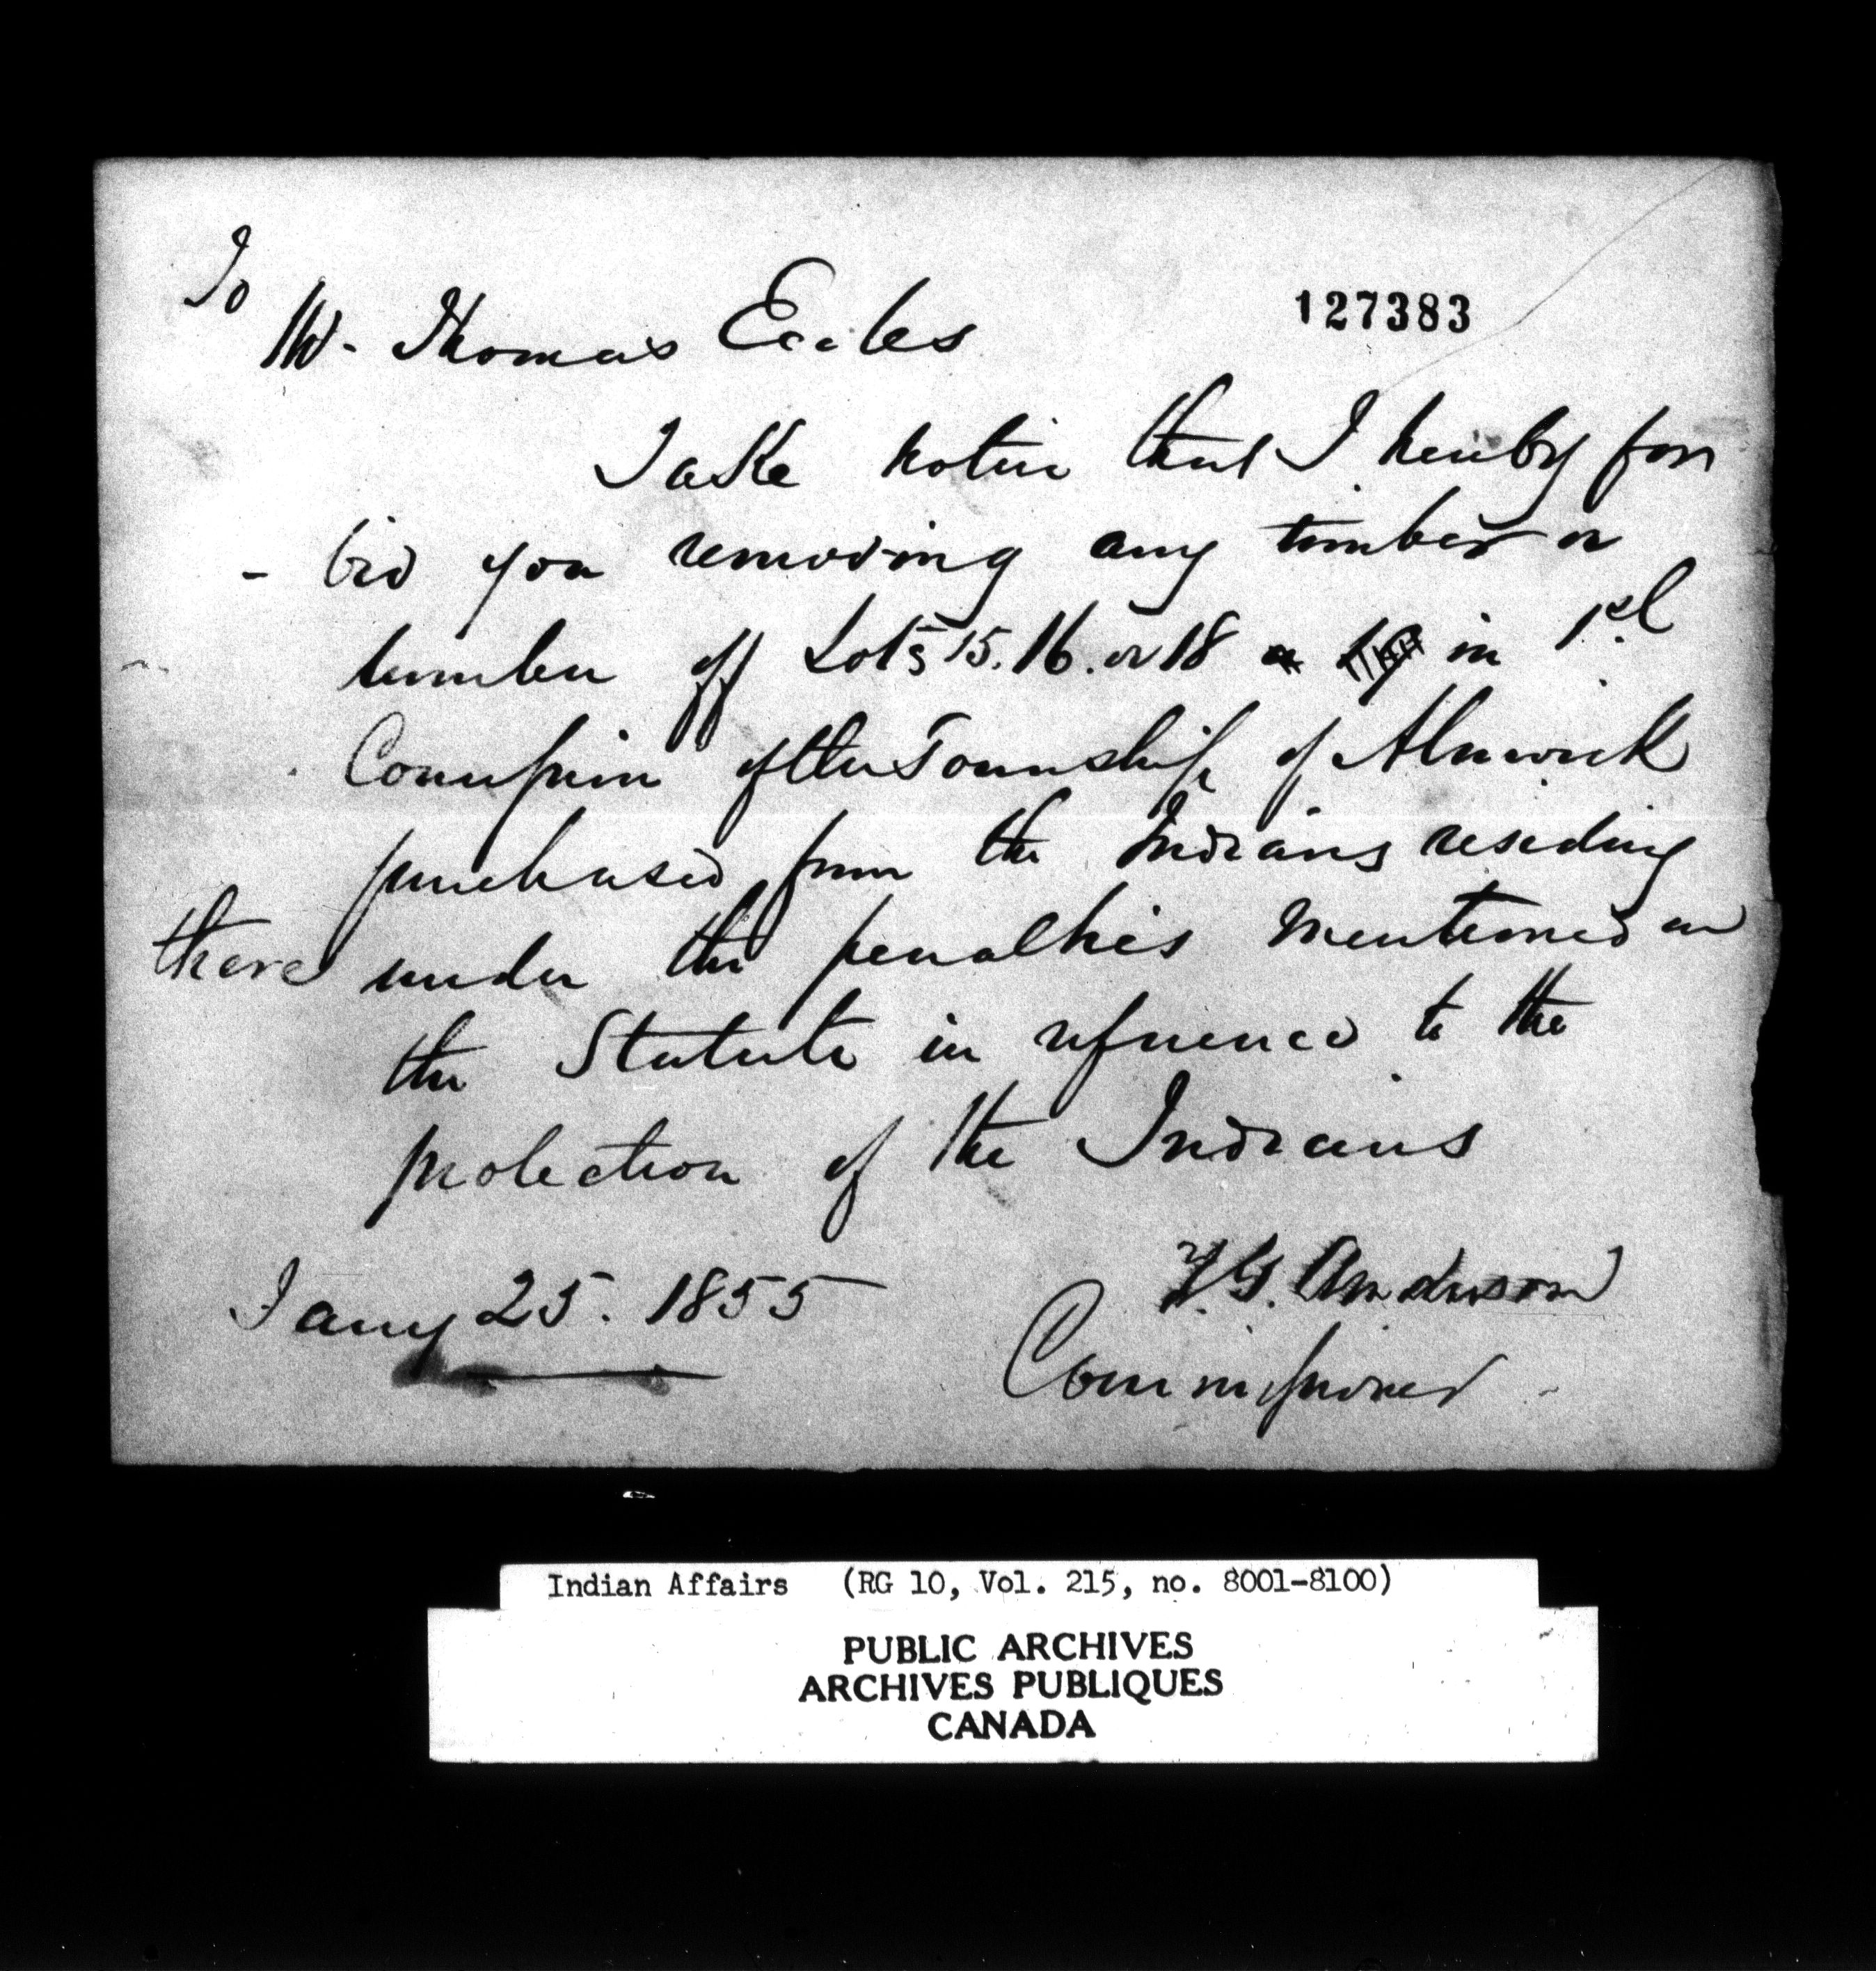 To
Mr. Thomas Eccles
127383
Take notice that I hereby for
- bid you removing any timber or
lumber off Lots 15. 16. or 18 in 1st
Concession of the Township of Alnwick
purchased from the Indians residing
there under the penalties mentioned in
the Statute in reference to the
protection of the Indians
T. G. Anderson
Jany 25. 1855
Commissioner
Indian Affairs (RG 10, Vol. 215, no. 8001-8100)
PUBLIC ARCHIVES
ARCHIVES PUBLIQUES
CANADA